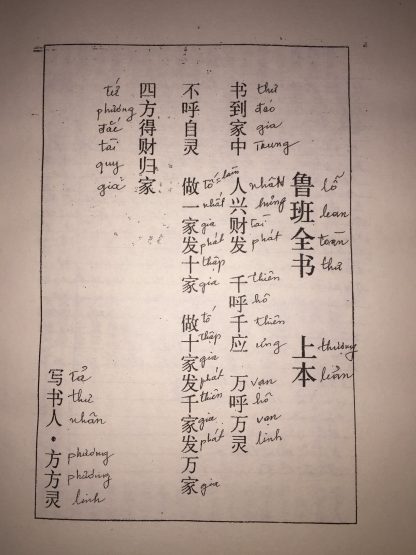 鲁班全书 上本
lỗ ban toàn thư thượng bản
书到家中 人兴财发 千呼千应 万呼万灵
thư đáo gia trung nhân hưng tài phát thiên hô thiên ứng vạn hô vạn linh
不呼自灵 做一家发十家 做十家发千家发万家
tố nhất gia phát thập gia tố thập gia phát thiên gia phát gia
四方得财归家
tứ phương đắc tài quy gia
写书人·方方灵
tả thư nhân phương phương linh